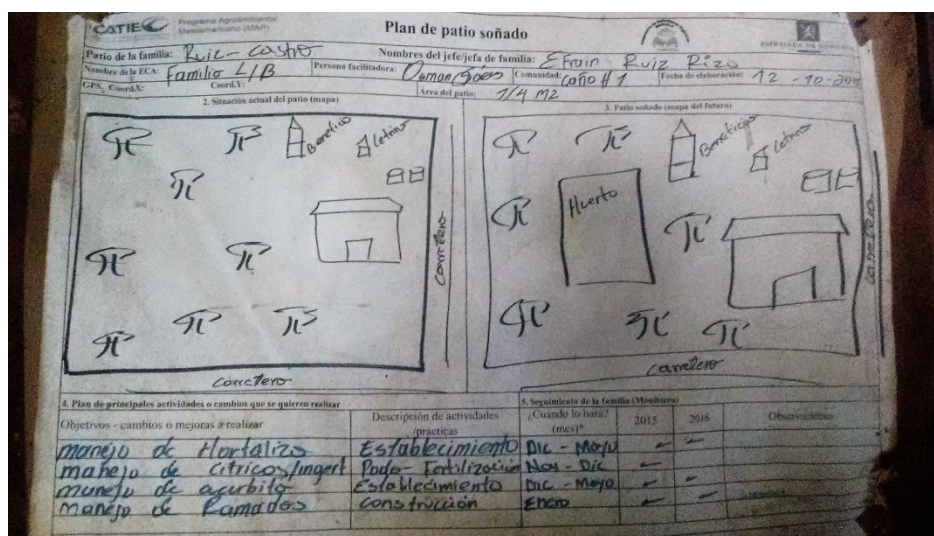 CATIE
Programa Agroambiental
Mesoamericano (MAP)
Plan de patio soñado
Patio de la familia: Ruiz-Castro
Nombres del jefe/jefa de familia: Efrain Ruiz Rizo
Nombre de la ECA: Familia L/B
Persona facilitadora:
Comunidad: Caño #1
Fecha de elaboración: 12-10-
GPS, Coord.X:
Coord.Y:
Área del patio: 1/4 M2
2. Situación actual del patio (mapa)
3. Patio soñado (mapa del futuro)
Beneficio
Letrina
Carretera
carretera
Beneficio
Letrina
Huerto
carretera
carretera
4. Plan de principales actividades o cambios que se quieren realizar
5. Seguimiento de la familia (Monitoreo)
Objetivos - cambios o mejoras a realizar
Descripción de actividades /prácticas
¿Cuándo lo hará? (mes)*
2015
2016
Observaciones
manejo de Hortaliza
Establecimiento
Dic - Mayo
manejo de citricos/ingert
Poda- Fertilización
Nov - Dic
manejo de
Establecimiento
Dic - Mayo
Manejo de Ramadas
construcción
Enero